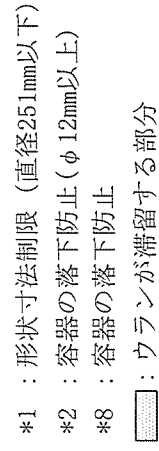 *1 : 形状寸法制限 (直径251mm以下)
*2 : 容器の落下防止(φ12mm以上)
*8 : 容器の落下防止
: ウランが滞留する部分